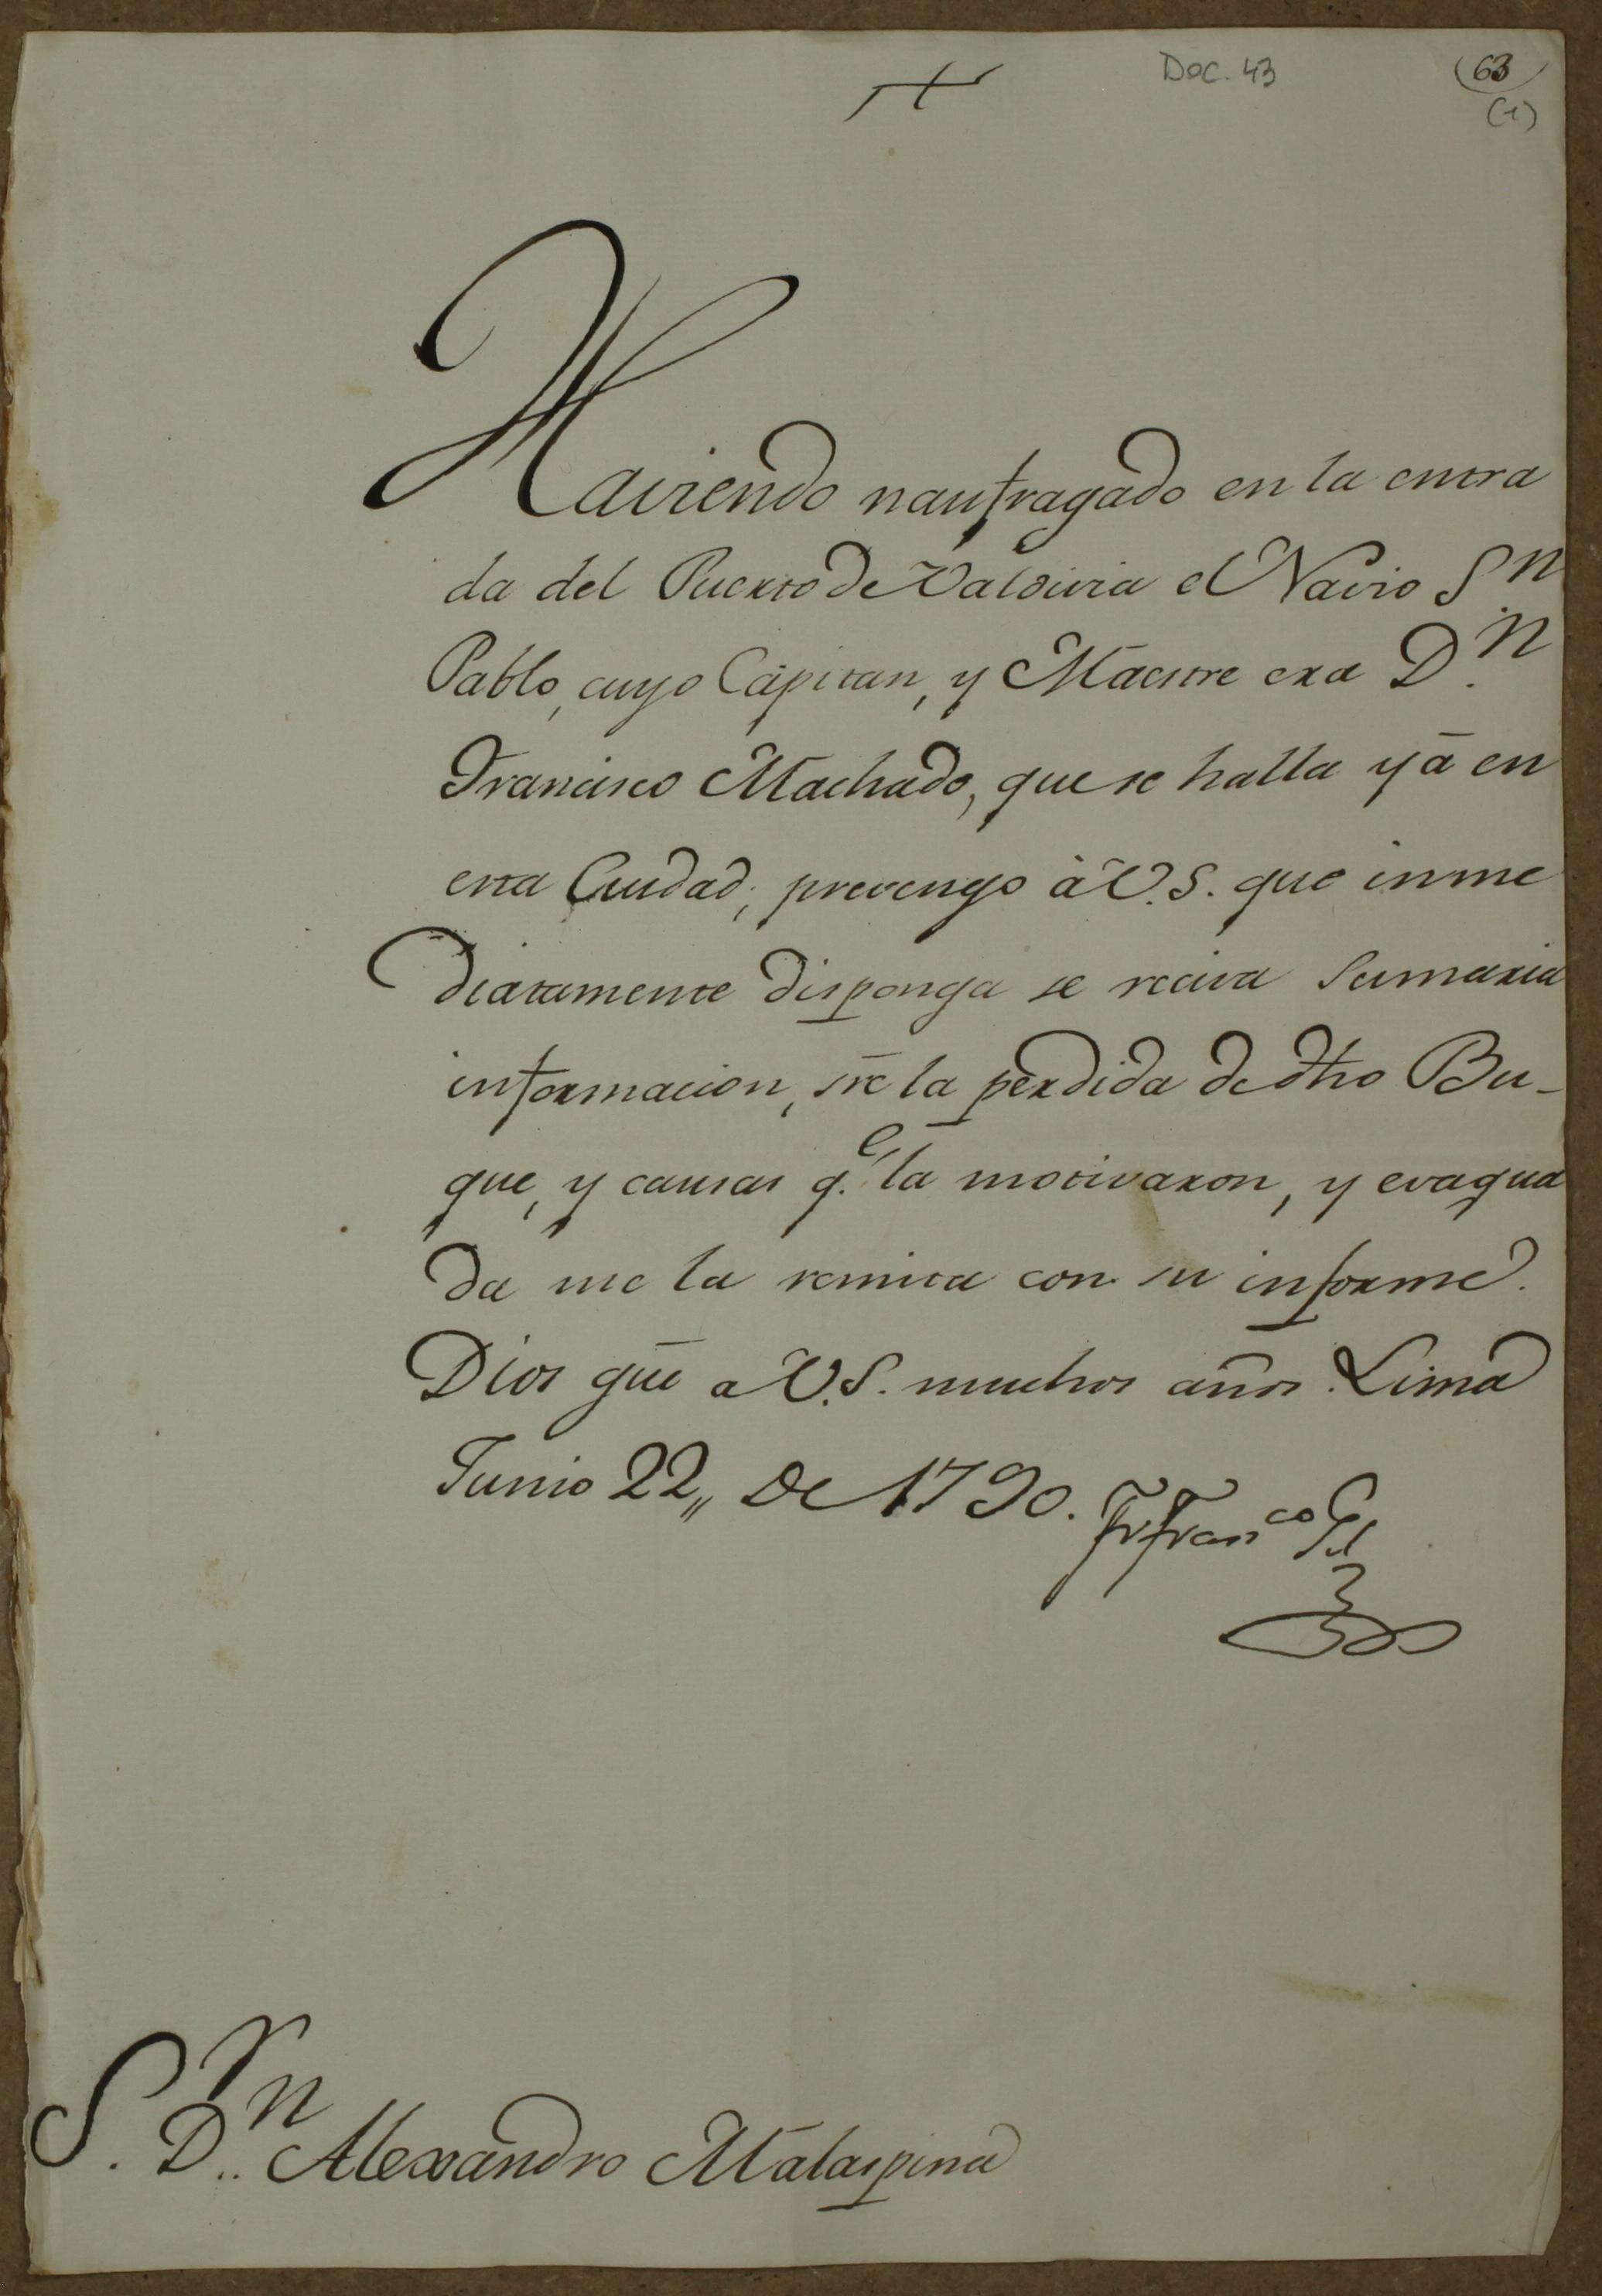 Doc. 43
63
(1)
Haviendo naufragado en la entra
da del Puerto de Valdivia el Navio Sn
Pablo, cuyo Capitan, y Maestre era D.n
Francisco Machado, que se halla yá en
esta Ciudad; prevengo à V.S. que inme
diatamente disponga se reciva Sumaria
informacion, sre la perdida de dho Bu-
que, y causas q.e la motivaron, y evaqua
da me la remita con su informe.
Dios gue a V.S. muchos años. Lima
Junio 22,, de 1790.
Fr Franco Gil
S.r D.n Alexandro Malaspina